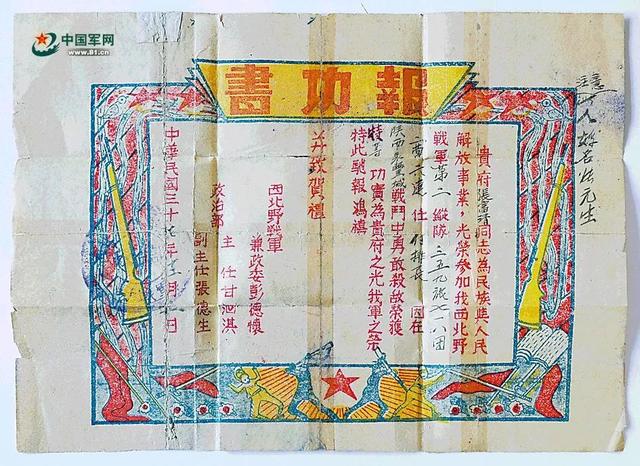 中国军网
www.81.cn
報功書
貴府張富清同志為民族與人民
解放事業，光榮參加我西北野
戰軍第二縱隊三五九旅七一八團
二營六連任付排長因在
陝西永豐城戰鬥中勇敢殺敵榮獲
特等功實為貴府之光我軍之榮
特此馳報鴻禧
并致賀禮
西北野戰軍
兼政委彭德懷
政治部
主任甘泗淇
副主任張德生
中華民國三十七年十二月日